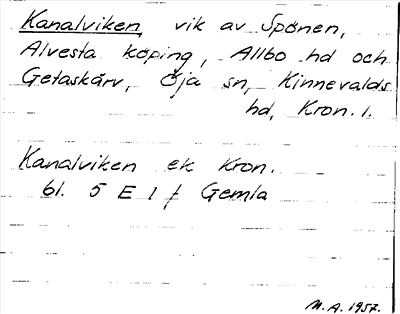 Kanalviken, vik av Spånen,
Alvesta köping, Allbo hd och
Getaskärv, Öja sn, Kinnevalds
hd, Kron. l.
Kanalviken ek Kron.
bl. 5 E 1 f Gemla
M.A. 1957.